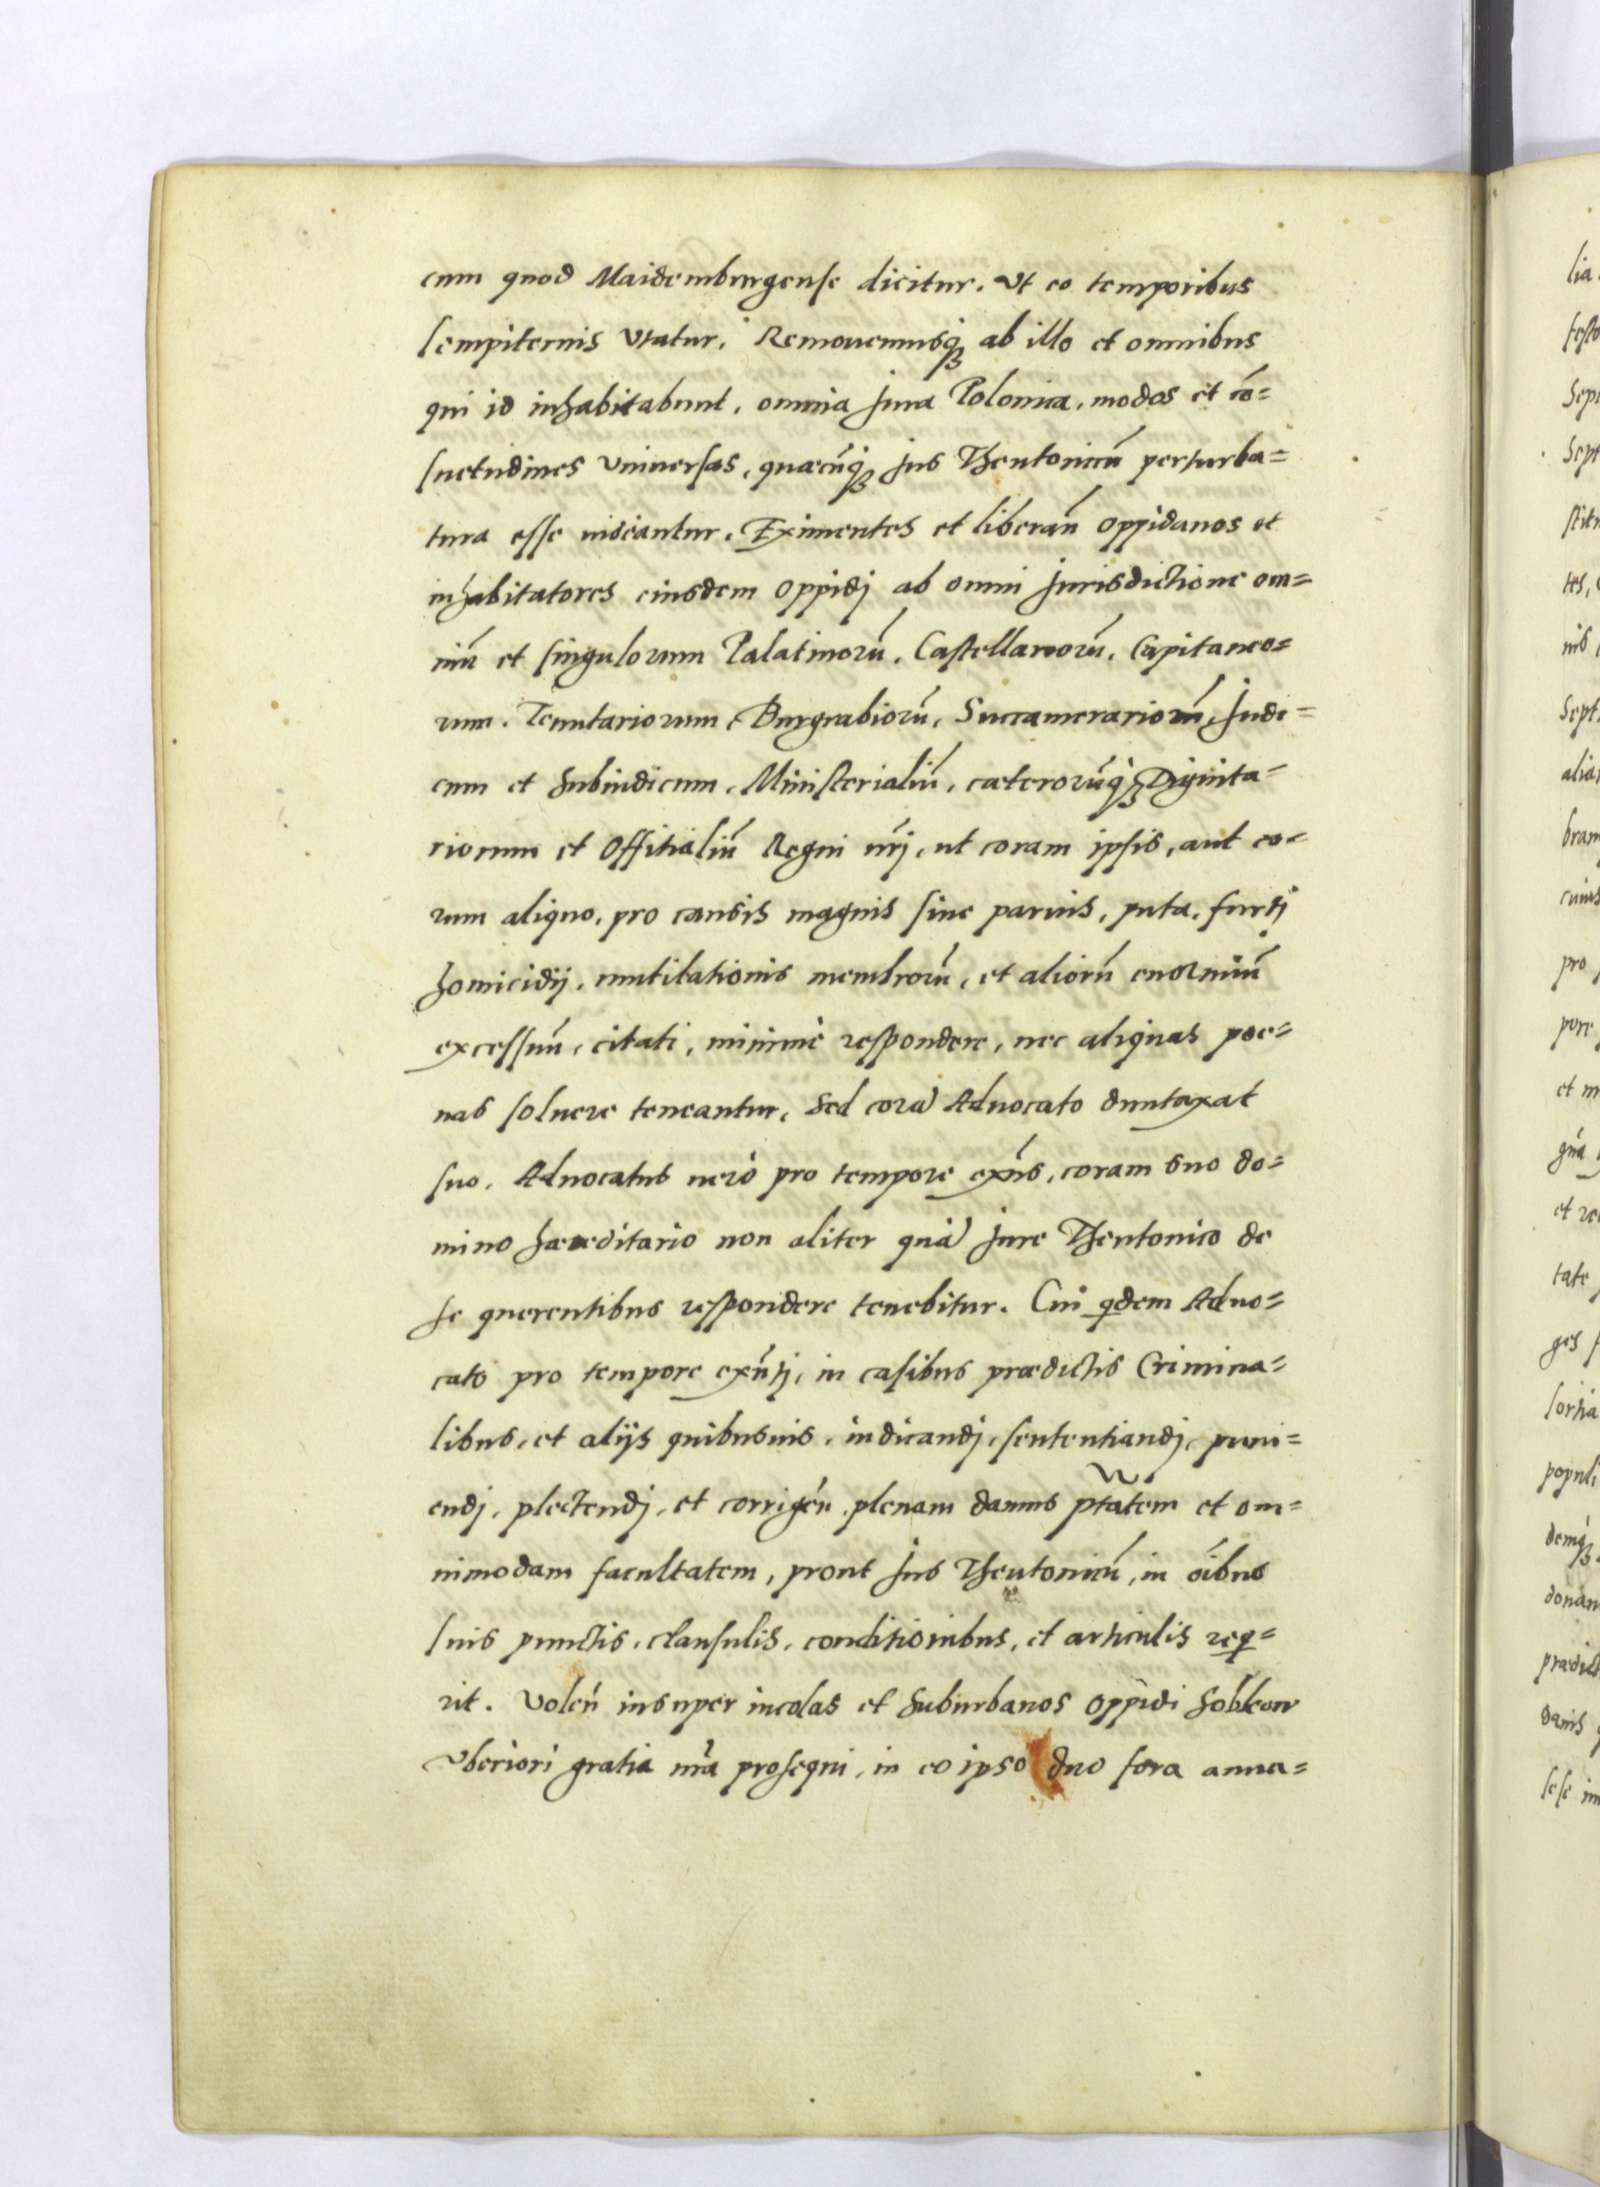 cum quod Maidemburgense dicitur. Vt eo temporibus
sempiternis vtatur. Remouemusq₃ ab illo et omnibus
qui id inhabitabunt, omnia Jura Polonica, modos et cō=
suetudines vniuersas, quæcūq₃ Jus Theutonicū perturba=
tura esse uideantur. Eximentes et liberañ oppidanos et
inhabitatores eiusdem oppidj ab omni Jurisdictione om=
niū et singulorum Palatinorū, Castellanorū, Capitaneo=
rum. Tenutariorum, Burgrabiorū, Succamerariorū, Judi=
cum et Subiudicum, Ministerialiū, cæterorūq₃ Dignita=
riorum et Offitialiū Regni nrī, ut coram ipsis, aut eo=
rum aliquo, pro causis magnis siue paruis, puta, furtj
homicidij, mutilationis membrorū, et aliorū enormiū
excessuū, citati, minime respondere, nec aliquas poe=
nas soluere teneantur, Sed corā Aduocato duntaxat
suo. Aduocatus uero pro tempore exñs, coram suo do=
mino hæreditario non aliter quā Jure Theutonico de
se querentibus respondere tenebitur. Cui qdem Aduo=
cato pro tempore exñtj, in casibus prædictis Crimina=
libus, et alijs quibusuis, iudicandj, sententiandj, puni=
endj, plectendj, et corrigeñ plenam damus ptatem et om=
nimodam facultatem, prout Jus Theutonicū, in oībus
suis punctis, clausulis, conditionibus, et articulis req=
rit. Voleñ insuper incolas et Suburbanos oppidi Sobkow
vberiori gratia nrā prosequi, in eo ipso duo fora annua=